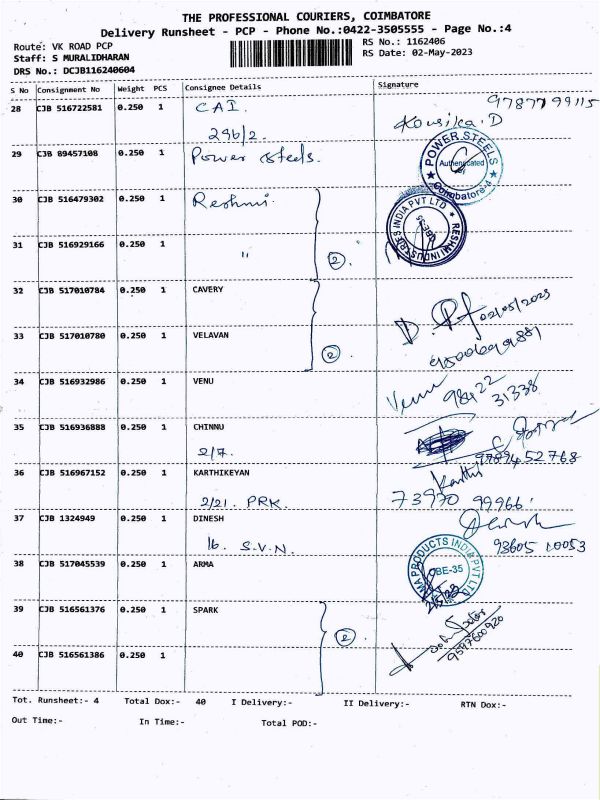 THE PROFESSIONAL COURIERS, COIMBATORE
Delivery Runsheet - PCP - Phone No.:0422-3505555 - Page No.:4
Route: VK ROAD PCP RS No.: 1162406
Staff: S MURALIDHARAN RS Date: 02-May-2023
DRS No.: DCJB116240604
S No Consignment No Weight PCS Consignee Details Signature
28 CJB 516722581 0.250 1 CAI. 9787799115
296/2. Kousika.D
29 CJB 89457108 0.250 1 Power Steels. POWER STEELS Authenticated By Coimbatore-4
30 CJB 516479302 0.250 1 Reshmi. RESHMI INDUSTRIES INDIA PVT LTD
31 CJB 516929166 0.250 1 " 2.
32 CJB 517010784 0.250 1 CAVERY 02/05/2023
33 CJB 517010780 0.250 1 VELAVAN 2
34 CJB 516932986 0.250 1 VENU Venu 98422 31338
35 CJB 516936888 0.250 1 CHINNU
2/7. 52768
36 CJB 516967152 0.250 1 KARTHIKEYAN Karthi
2/21. PRK. 73970 99966
37 CJB 1324949 0.250 1 DINESH
16. S.V.N. 93605 10053
38 CJB 517045539 0.250 1 ARMA PRODUCTS INDIA PVT LTD BE-35
39 CJB 516561376 0.250 1 SPARK 2.
9597600920
40 CJB 516561386 0.250 1
Tot. Runsheet:- 4 Total Dox:- 40 I Delivery:- II Delivery:- RTN Dox:-
Out Time:- In Time:- Total POD:-